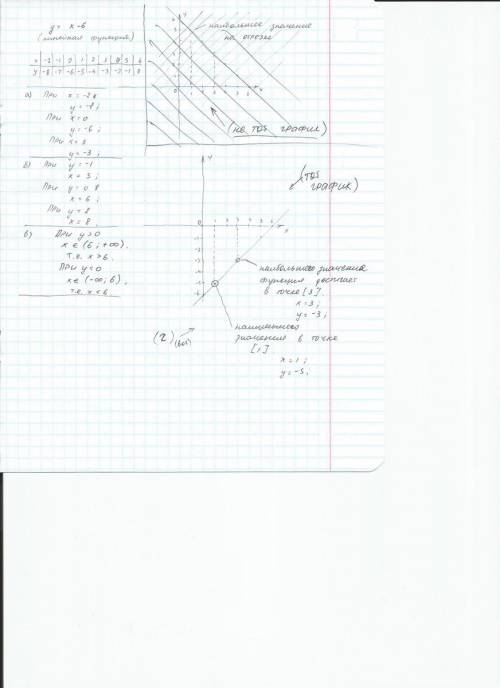 y = x-6
(линейная функция)
x -2 -1 0 1 2 3 4 5 6
y -8 -7 -6 -5 -4 -3 -2 -1 0
а) При x = -2
y = -8;
При x = 0
y = -6;
При x = 3
y = -3;
б) При y = -1
x = 5;
При y = 0
x = 6;
При y =
x = 8.
в) При y > 0
x ∈ (6; +∞),
т.е. x > 6.
При y < 0
x ∈ (-∞; 6),
т.е. x < 6.
наибольшее значение
на отрезке
(не тот график)
y
(тот
график)
1 2 3 4 5 6
x
-1
-2
-3
-4
-5
-6
наибольшего значения
функция достигает
в точке [3].
x = 3;
y = -3;
(г)
наименьшего
значения в точке
[1]
x = 1;
y = -5.